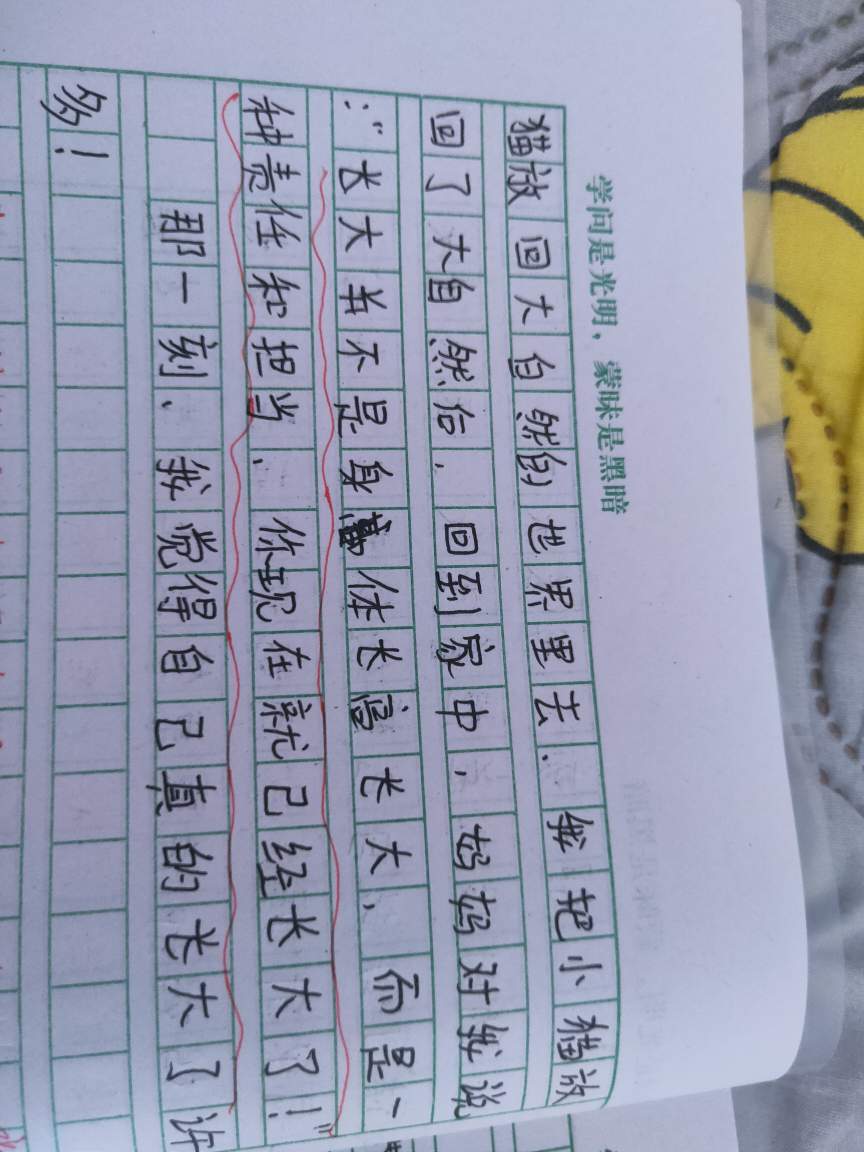 学问是光明，蒙昧是黑暗
猫放回大自然的世界里去．我把小猫放
回了大自然后，回到家中，妈妈对我说
：“长大并不是身高体长高长大，而是一
种责任和担当，你现在就已经长大了！”
那一刻、我觉得自己真的长大了许
多！